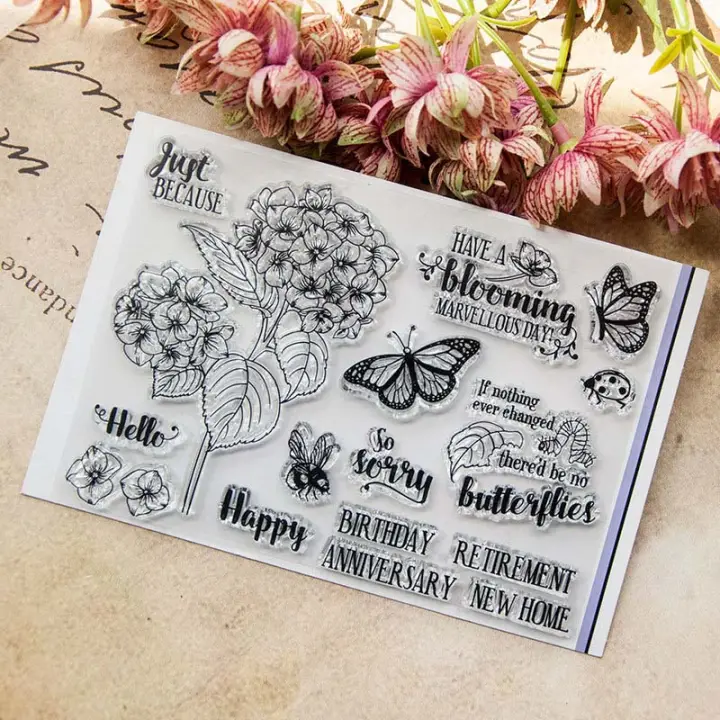 Just
BECAUSE
HAVE A
blooming
MARVELLOUS DAY!
If nothing
ever changed
there'd be no
butterflies
Hello
So
sorry
Happy
BIRTHDAY
ANNIVERSARY
RETIREMENT
NEW HOME
ndance